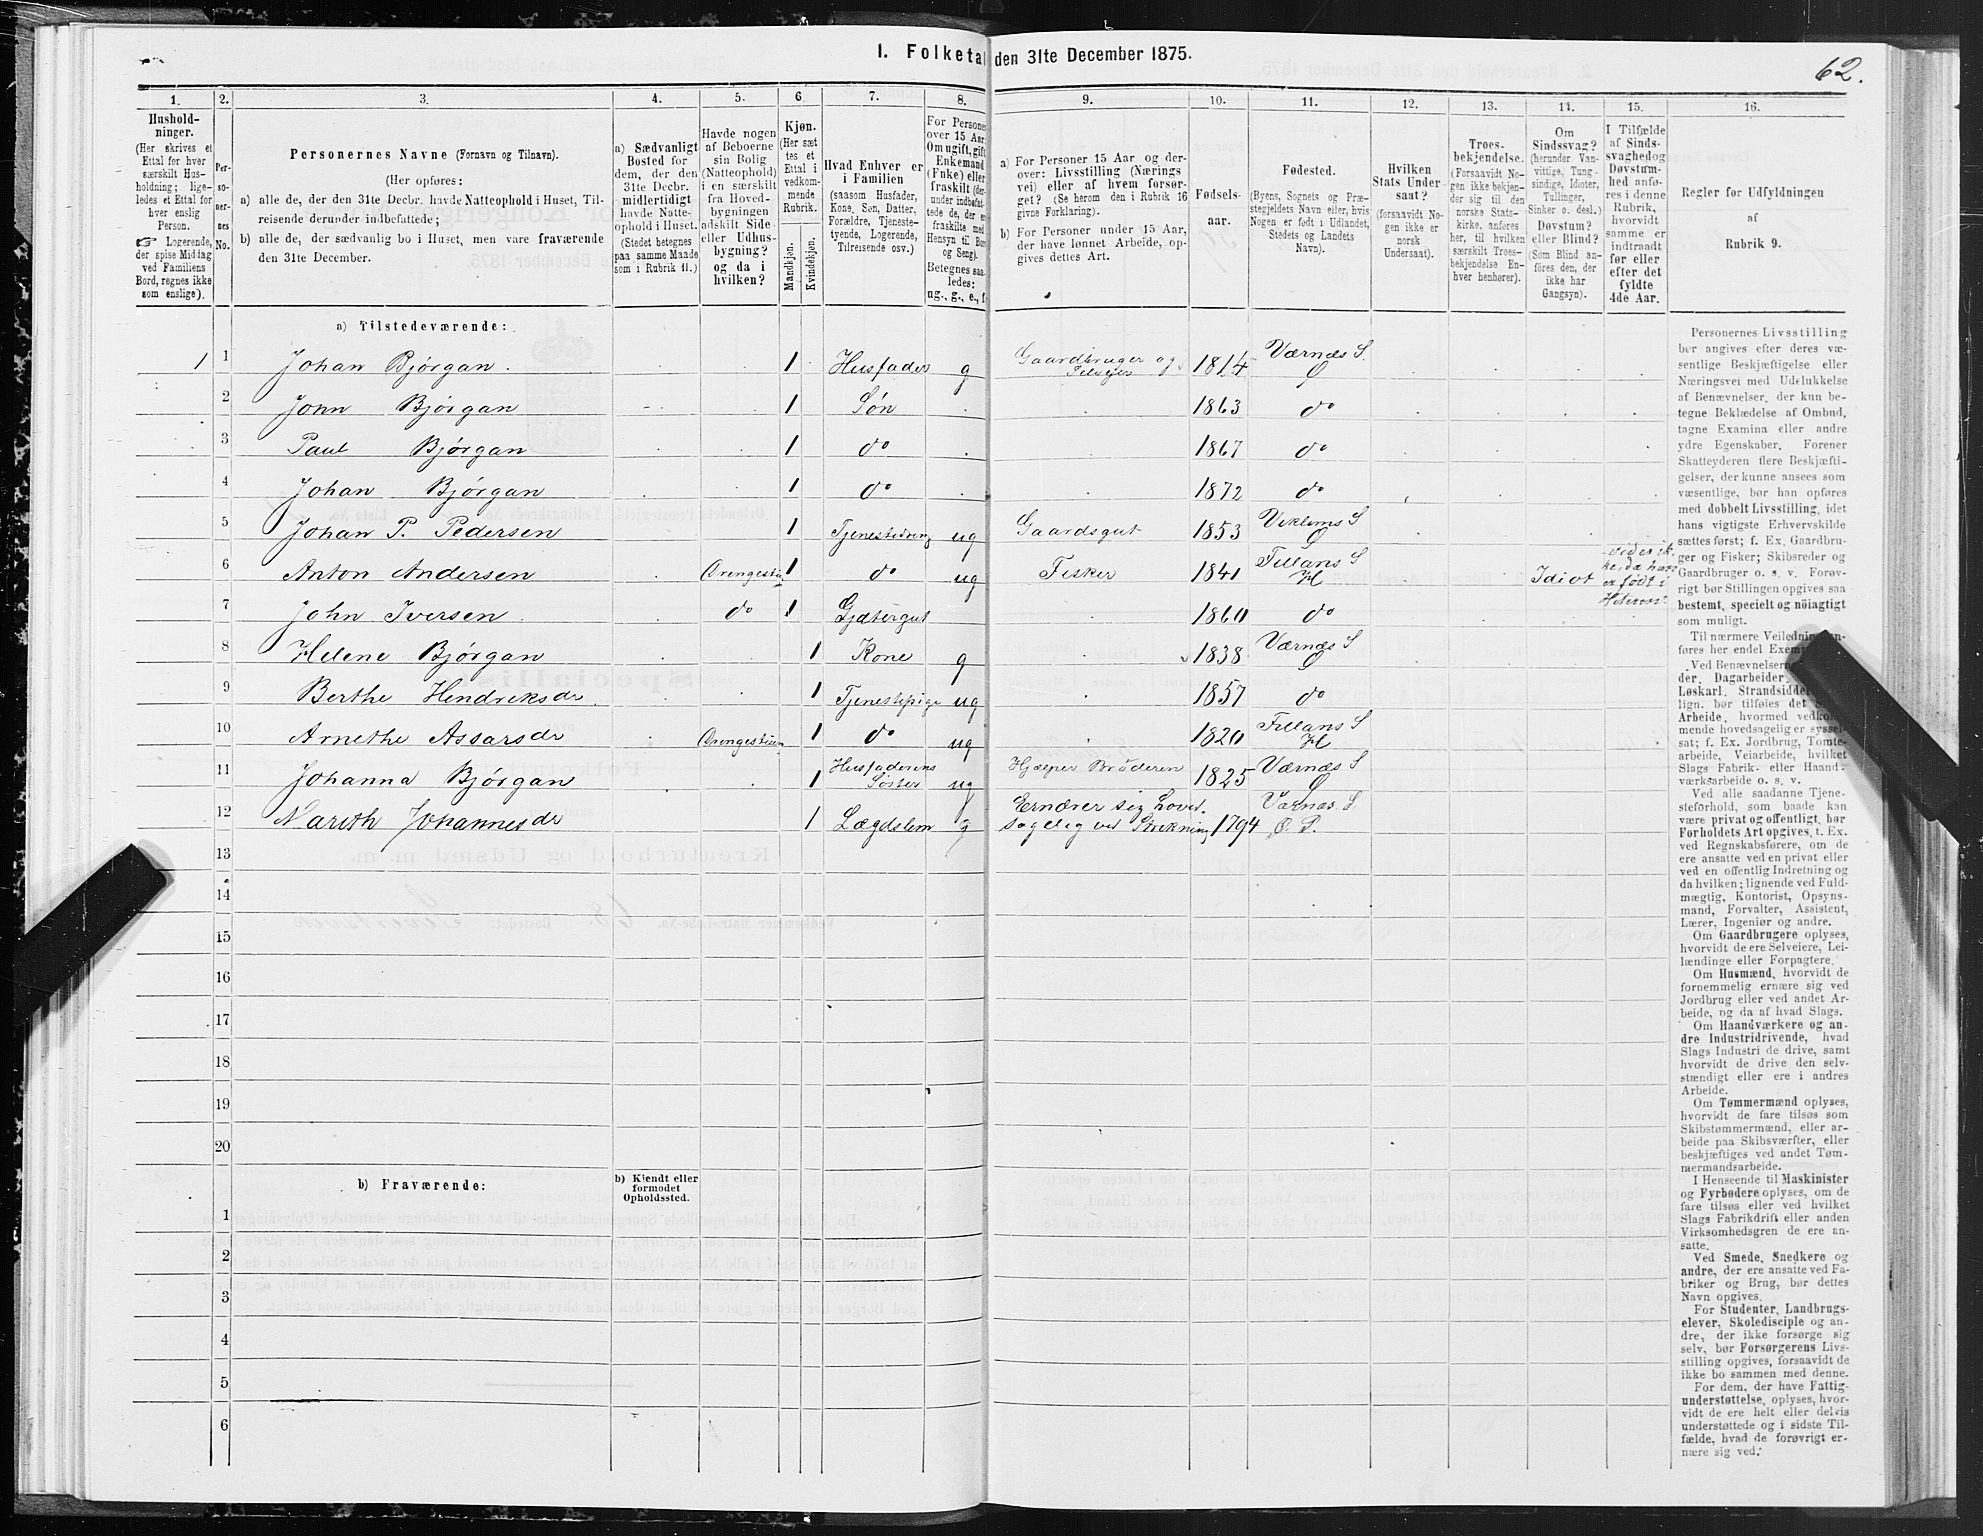 I. Folketal den 31te December 1875.
62.
1. 2. 3. 4. 5. 6 7. 8. 9. 10. 11. 12. 13. 14. 15. 16.
Hushold-
ninger.
(Her skrives et
Ettal for hver
særskilt Hus-
holdning; lige-
ledes et Ettal for
hver enslig
Person.
☞ Logerende,
der spise Middag
ved Familiens
Bord, regnes ikke
som enslige).
Per-
so-
ner-
nes
No.
Personernes Navne (Fornavn og Tilnavn).
(Her opføres:
a) alle de, der den 31te Decbr. havde Natteophold i Huset, Til-
reisende derunder indbefattede;
b) alle de, der sædvanlig bo i Huset, men vare fraværende
den 31te December.
a) Sædvanligt
Bosted for
dem, der den
31te Decbr.
midlertidigt
havde Natte-
ophold i Huset.
(Stedet betegnes
paa samme Maade
som i Rubrik 11.)
Havde nogen
af Beboerne
sin Bolig
(Natteophold)
i en særskilt
fra Hoved-
bygningen
adskilt Side-
eller Udhus-
bygning?
og da i
hvilken?
Kjøn.
(Her sæt
tes et
Ettal i
vedkom-
mende
Rubrik.
Mandkjøn.
Kvindekjøn.
Hvad Enhver er
i Familien
(saasom Husfader,
Kone, Søn, Datter,
Forældre, Tjeneste-
tyende, Logerende,
Tilreisende osv.)
For Personer
over 15 Aar:
Om ugift, gift,
Enkemand
(Enke) eller
fraskilt (der-
under indbefat-
tede de, der ere
fraskilte med
Hensyn til Bord
og Seng).
Betegnes saa-
ledes:
ug., g., e., f.
a) For Personer 15 Aar og der-
over: Livsstilling (Nærings
vei) eller af hvem forsør-
get? (Se herom den i Rubrik 16
givne Forklaring).
b) For Personer under 15 Aar,
der have lønnet Arbeide, op-
gives dettes Art.
Fødsels-
aar.
Fødested.
(Byens, Sognets og Præ-
stegjeldets Navn eller, hvis
Nogen er født i Udlandet,
Stedets og Landets
Navn).
Hvilken
Stats Under-
saat?
(forsaavidt No-
gen ikke er
norsk
Undersaat).
Troes-
bekjendelse.
(Forsaavidt No-
gen ikke bekjen-
der sig til den
norske Stats-
kirke, anføres
her, til hvilken
særskilt Troes-
bekjendelse En-
hver henhører).
Om
Sindssvag?
(herunder Van-
vittige, Tung-
sindige, Idioter,
Tullinger,
Sinker o. desl.)
Døvstum?
eller Blind?
(Som Blind an-
føres den, der
ikke har
Gangsyn).
I Tilfælde
af Sinds-
svaghedog
Døvstum-
hed anfø-
res i denne
Rubrik,
hvorvidt
samme er
indtraadt
før eller
efter det
fyldte
4de Aar.
Regler for Udfyldningen
af
Rubrik 9.
a) Tilstedeværende:
1 1 Johan Bjørgan. 1 Husfader g Gaardbruger og Selveier 1814 Værnæs S. Ø
2 John Bjørgan 1 Søn 1863 do
3 Paul Bjørgan 1 do 1867 do
4 Johan Bjørgan 1 do 1872 do
5 Johan P. Pedersen 1 Tjenestedreng ug Gaardsgut 1853 Viklems S Ø
6 Anton Andersen Drengestuen 1 do ug Fisker 1841 Fillans S H Idiot
7 John Iversen do 1 Gjætergut 1860 do
8 Helene Bjørgan 1 Kone g 1838 Værnæs S Ø
9 Berthe Hendriksdr. 1 Tjenestepige ug 1857 do
10 Arnethe Assarsdr Drengestuen 1 do ug 1820 Fillans S H
11 Johanna Bjørgan 1 Husfaderens Søster ug Hjælper Broderen 1825 Værnæs S Ø
12 Mareth Johannesdr 1 Lægdslem Ernærer sig hoved-
sagelig ved Strikning 1794 Værnæs. S. Ø. P.
13
14
15
16
17
18
19
20
b) Fraværende:
b) Kjendt eller
formodet
Opholdssted.
1
2
3
4
5
6
Personernes Livsstilling
bør angives efter deres væ-
sentlige Beskjæftigelse eller
Næringsvei med Udelukkelse
af Benævnelser, der kun be-
tegne Beklædelse af Ombud,
tagne Examina eller andre
ydre Egenskaber. Forener
Skatteyderen flere Beskjæfti-
gelser, der kunne ansees som
væsentlige, bør han opføres
med dobbelt Livsstilling, idet
hans vigtigste Erhvervskilde
sættes først; f. Ex. Gaardbru-
ger og Fisker; Skibsreder og
Gaardbruger o. s. v. Forøv-
rigt bør Stillingen opgives saa
bestemt, specielt og nöiagtigt
som muligt.
Til nærmere Veiledning an-
føres her endel Exempler:
Ved Benævnelserne
Dagarbeider,
Løskarl, Strandsidder
lign. bør tilføies det Slags
Arbeide, hvormed vedkom-
mende hovedsagelig er syssel-
sat; f. Ex. Jordbrug, Tomte-
arbeide, Veiarbeide, hvilket
Slags Fabrik- eller Haand-
værksarbeide o. s. v.
Ved alle saadanne Tjene-
steforhold, som baade kan
være privat og offentligt, bør
Forholdets Art opgives, t. Ex.
ved Regnskabsførere, om de
ere ansatte ved en privat eller
ved en offentlig Indretning og
da hvilken; lignende ved Fuld-
mægtig, Kontorist, Opsyns-
mand, Forvalter, Assistent,
Lærer, Ingeniør og andre.
Om Gaardbrugere oplyses,
hvorvidt de ere Selveiere, Lei-
lændinge eller Forpagtere.
Om Husmænd, hvorvidt de
fornemmelig ernære sig ved
Jordbrug eller ved andet Ar-
beide, og da af hvad Slags.
Om Haandværkere og an-
dre Industridrivende, hvad
Slags Industri de drive, samt
hvorvidt de drive den selv-
stændigt eller ere i andres
Arbeide.
Om Tømmermænd oplyses,
hvorvidt de fare tilsøs som
Skibstømmermænd, eller ar-
beide paa Skibsværfter, eller
beskjæftiges ved andet Tøm-
mermandsarbeide.
I Henseende til Maskinister
og Fyrbødere oplyses, om de
fare tilsøs eller ved hvilket
Slags Fabrikdrift eller anden
Virksomhedsgren de ere an-
satte.
Ved Smede, Snedkere og
andre, der ere ansatte ved Fa-
briker og Brug, bør dettes
Navn opgives.
For Studenter, Landbrugs-
elever, Skoledisciple og an-
dre, der ikke forsørge sig
selv, bør Forsørgerens Livs-
stilling opgives, forsaavidt de
ikke bo sammen med denne.
For dem, der have Fattig-
understøttelse, oplyses, hvor-
vidt de ere helt eller delvis
understøttede og i sidste Til-
fælde, hvad de forøvrigt er-
nære sig ved.